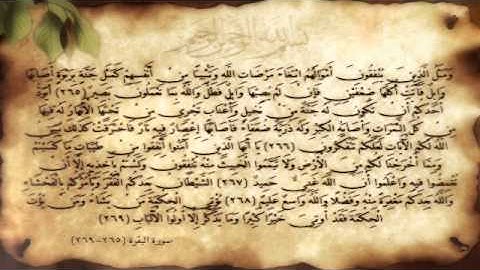 بسم الله الرحمن الرحيم
وَمَثَلُ الَّذِينَ يُنْفِقُونَ أَمْوَالَهُمُ ابْتِغَاءَ مَرْضَاتِ اللَّهِ وَتَثْبِيتًا مِنْ أَنْفُسِهِمْ كَمَثَلِ جَنَّةٍ بِرَبْوَةٍ أَصَابَهَا
وَابِلٌ فَآتَتْ أُكُلَهَا ضِعْفَيْنِ فَإِنْ لَمْ يُصِبْهَا وَابِلٌ فَطَلٌّ وَاللَّهُ بِمَا تَعْمَلُونَ بَصِيرٌ (٢٦٥) أَيَوَدُّ
أَحَدُكُمْ أَنْ تَكُونَ لَهُ جَنَّةٌ مِنْ نَخِيلٍ وَأَعْنَابٍ تَجْرِي مِنْ تَحْتِهَا الْأَنْهَارُ لَهُ فِيهَا
مِنْ كُلِّ الثَّمَرَاتِ وَأَصَابَهُ الْكِبَرُ وَلَهُ ذُرِّيَّةٌ ضُعَفَاءُ فَأَصَابَهَا إِعْصَارٌ فِيهِ نَارٌ فَاحْتَرَقَتْ كَذَلِكَ يُبَيِّنُ
اللَّهُ لَكُمُ الْآيَاتِ لَعَلَّكُمْ تَتَفَكَّرُونَ (٢٦٦) يَا أَيُّهَا الَّذِينَ آمَنُوا أَنْفِقُوا مِنْ طَيِّبَاتِ مَا كَسَبْتُمْ
وَمِمَّا أَخْرَجْنَا لَكُمْ مِنَ الْأَرْضِ وَلَا تَيَمَّمُوا الْخَبِيثَ مِنْهُ تُنْفِقُونَ وَلَسْتُمْ بِآخِذِيهِ إِلَّا أَنْ
تُغْمِضُوا فِيهِ وَاعْلَمُوا أَنَّ اللَّهَ غَنِيٌّ حَمِيدٌ (٢٦٧) الشَّيْطَانُ يَعِدُكُمُ الْفَقْرَ وَيَأْمُرُكُمْ بِالْفَحْشَاءِ
وَاللَّهُ يَعِدُكُمْ مَغْفِرَةً مِنْهُ وَفَضْلًا وَاللَّهُ وَاسِعٌ عَلِيمٌ (٢٦٨) يُؤْتِي الْحِكْمَةَ مَنْ يَشَاءُ وَمَنْ يُؤْتَ
الْحِكْمَةَ فَقَدْ أُوتِيَ خَيْرًا كَثِيرًا وَمَا يَذَّكَّرُ إِلَّا أُولُو الْأَلْبَابِ (٢٦٩)
سورة البقرة (٢٦٥-٢٦٩)